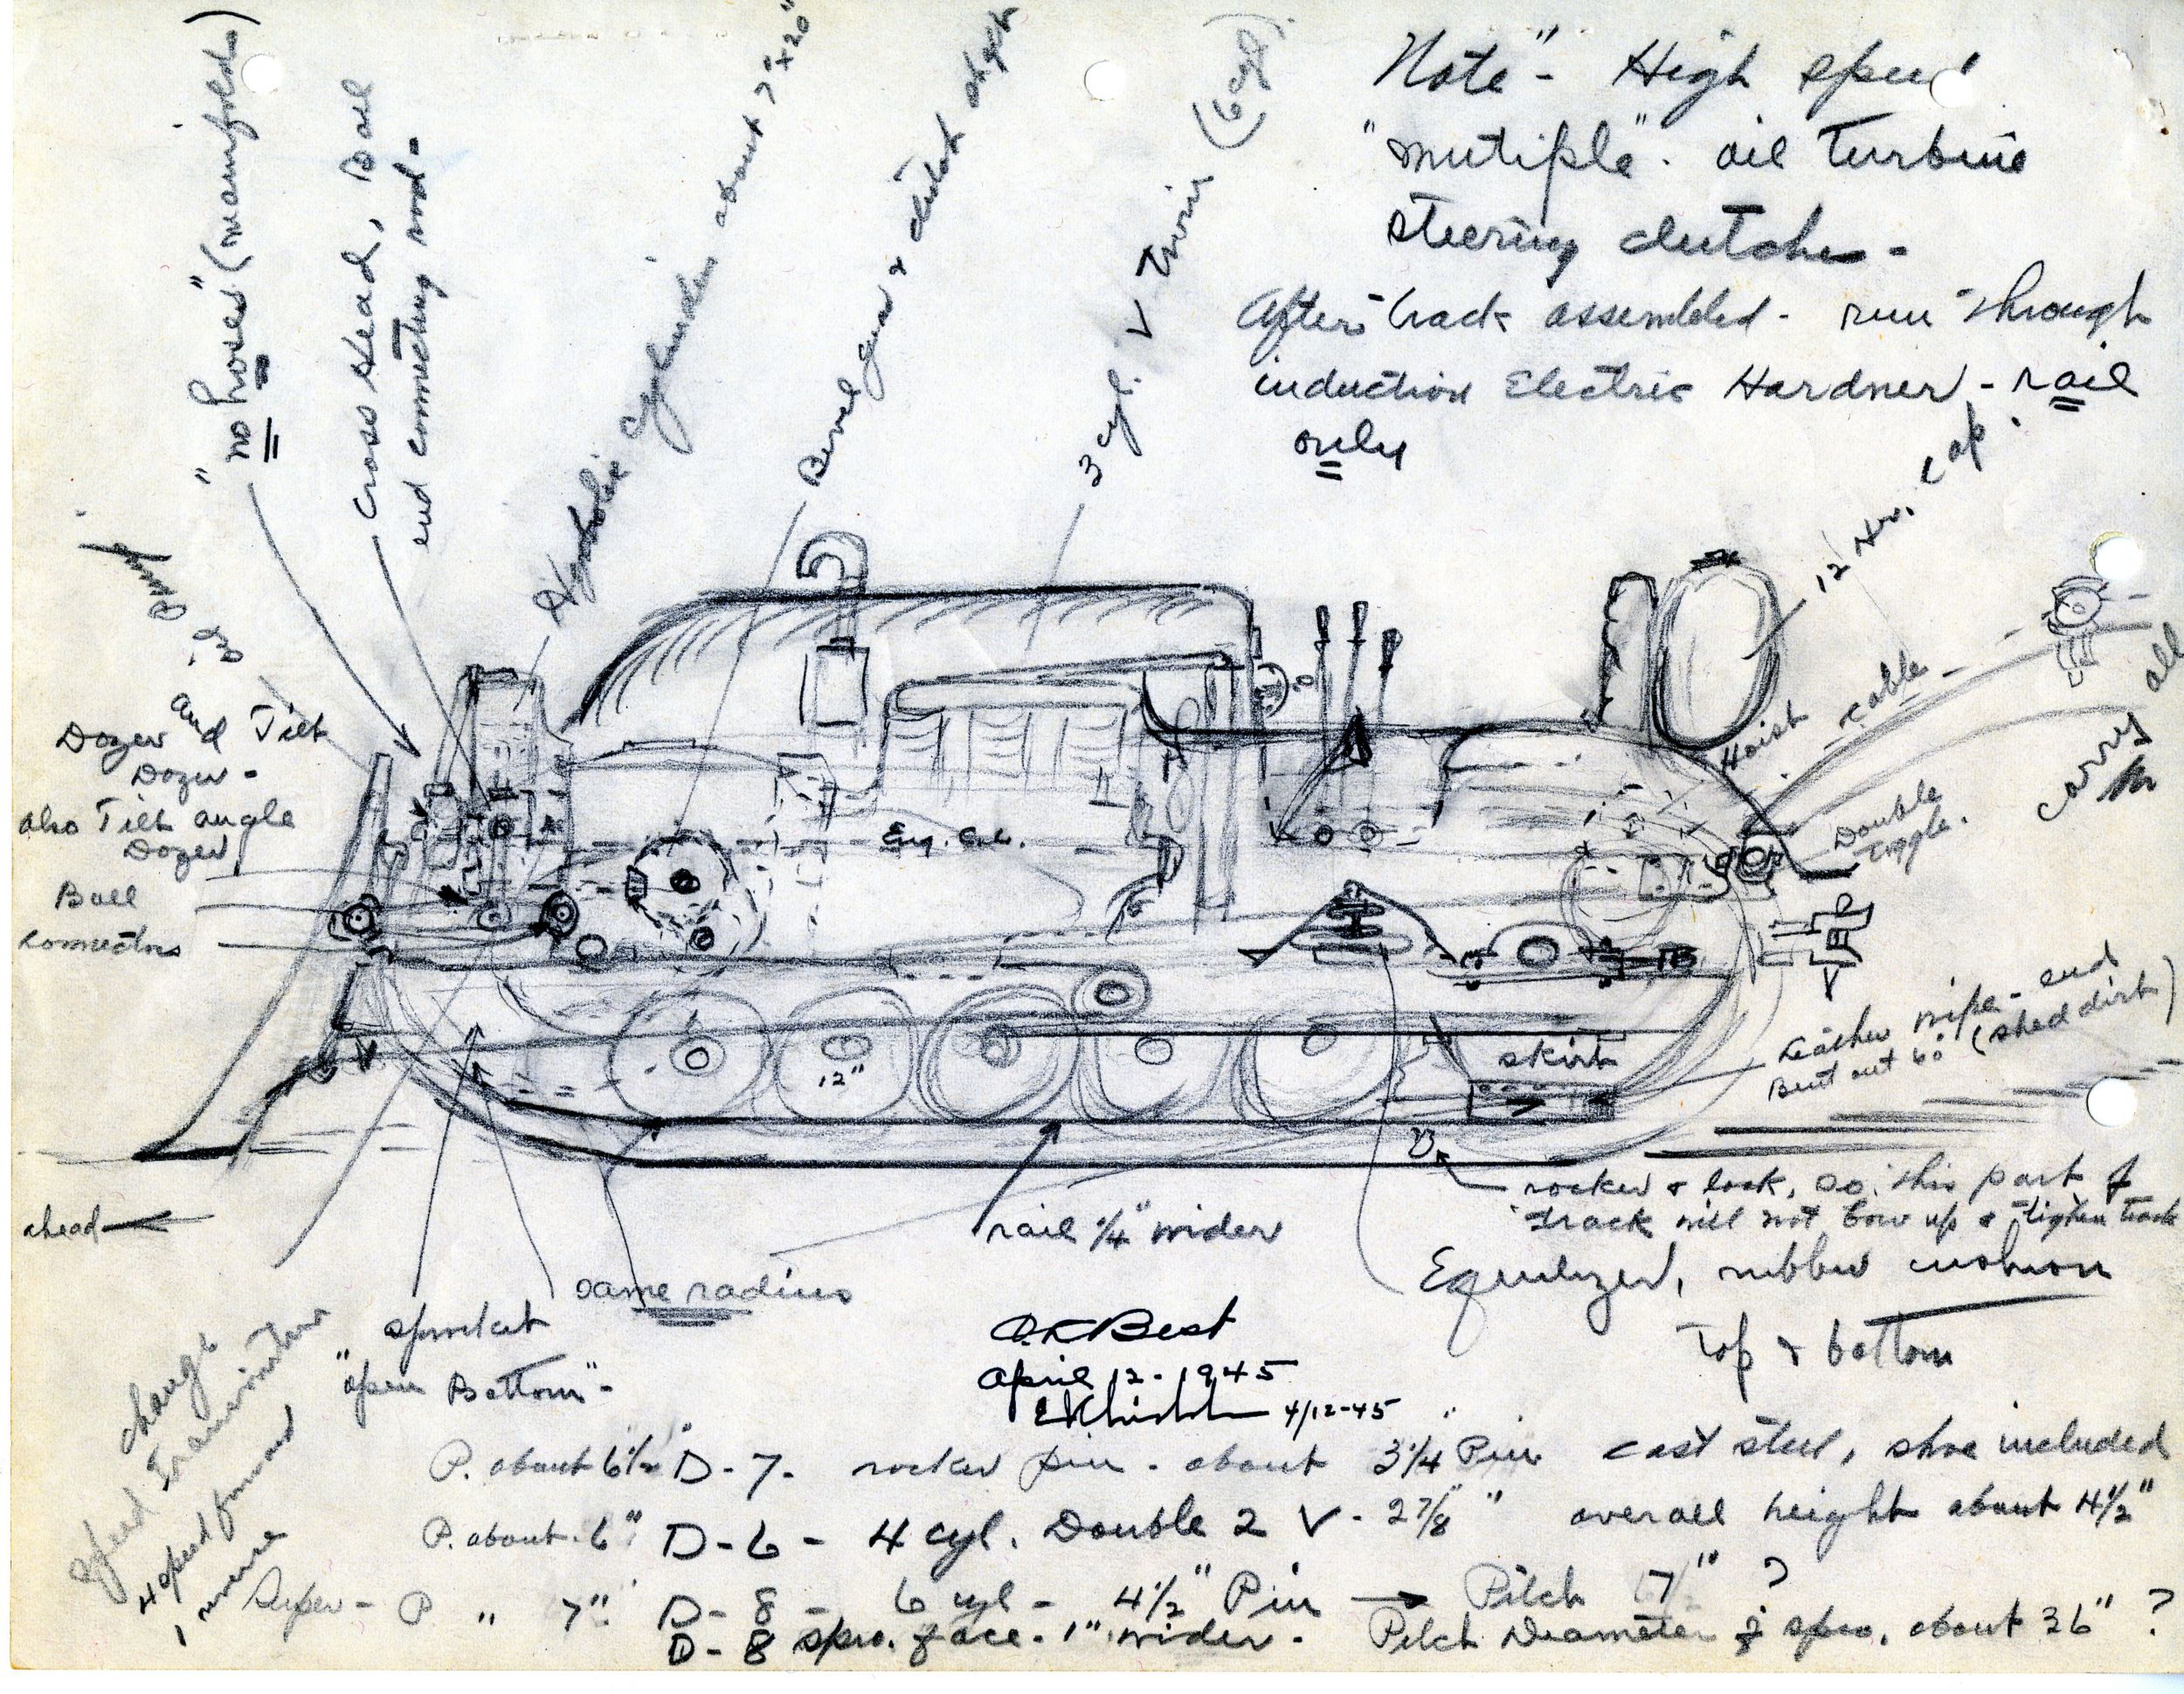 "no hoses" (manifolds)
Cross Head, Ball
end connecting rod -
Hydrolic Cylinder about 7" x 20"
Bevel gear & clutch
3 cyl. V Twin (6 cyl)
Note" - High speed
"mutiple" - oil turbine
steering clutches -
After track assembled - run through
induction Electric Hardner - rail
only
12 Hr. cap.
Hoist cable
carry all
Double
toggle.
oil pump
Dozer and Tilt
Dozer -
also Tilt angle
Dozer
Ball
connectors
Eng. C.L.
12"
skirt
Leather wipe - end
Bent out 60° (shed dirt)
B
rocker & lock, so this part of
track will not bow up & tighten track
ahead
rail 1/4" wider
Equilizer, rubber cushion
Top & bottom
same radius
sprocket
"open Bottom" -
change
speed Transmission
4 speed forward
1 reverse
C.K Best
April 12 - 1945
4/12-45
P. about 6 1/2" D-7 - rocker pin - about 3 1/4" Pin cast steel, shoe included
P. about 6" D-6 - 4 cyl. Double 2 V - 2 7/8" " overall height about 4 1/2"
Super - P " 7" D-8 - 6 cyl - 4 1/2" Pin → Pitch 7" ?
D-8 spro. face - 1" wider - Pitch Diameter of spro. about 36" ?